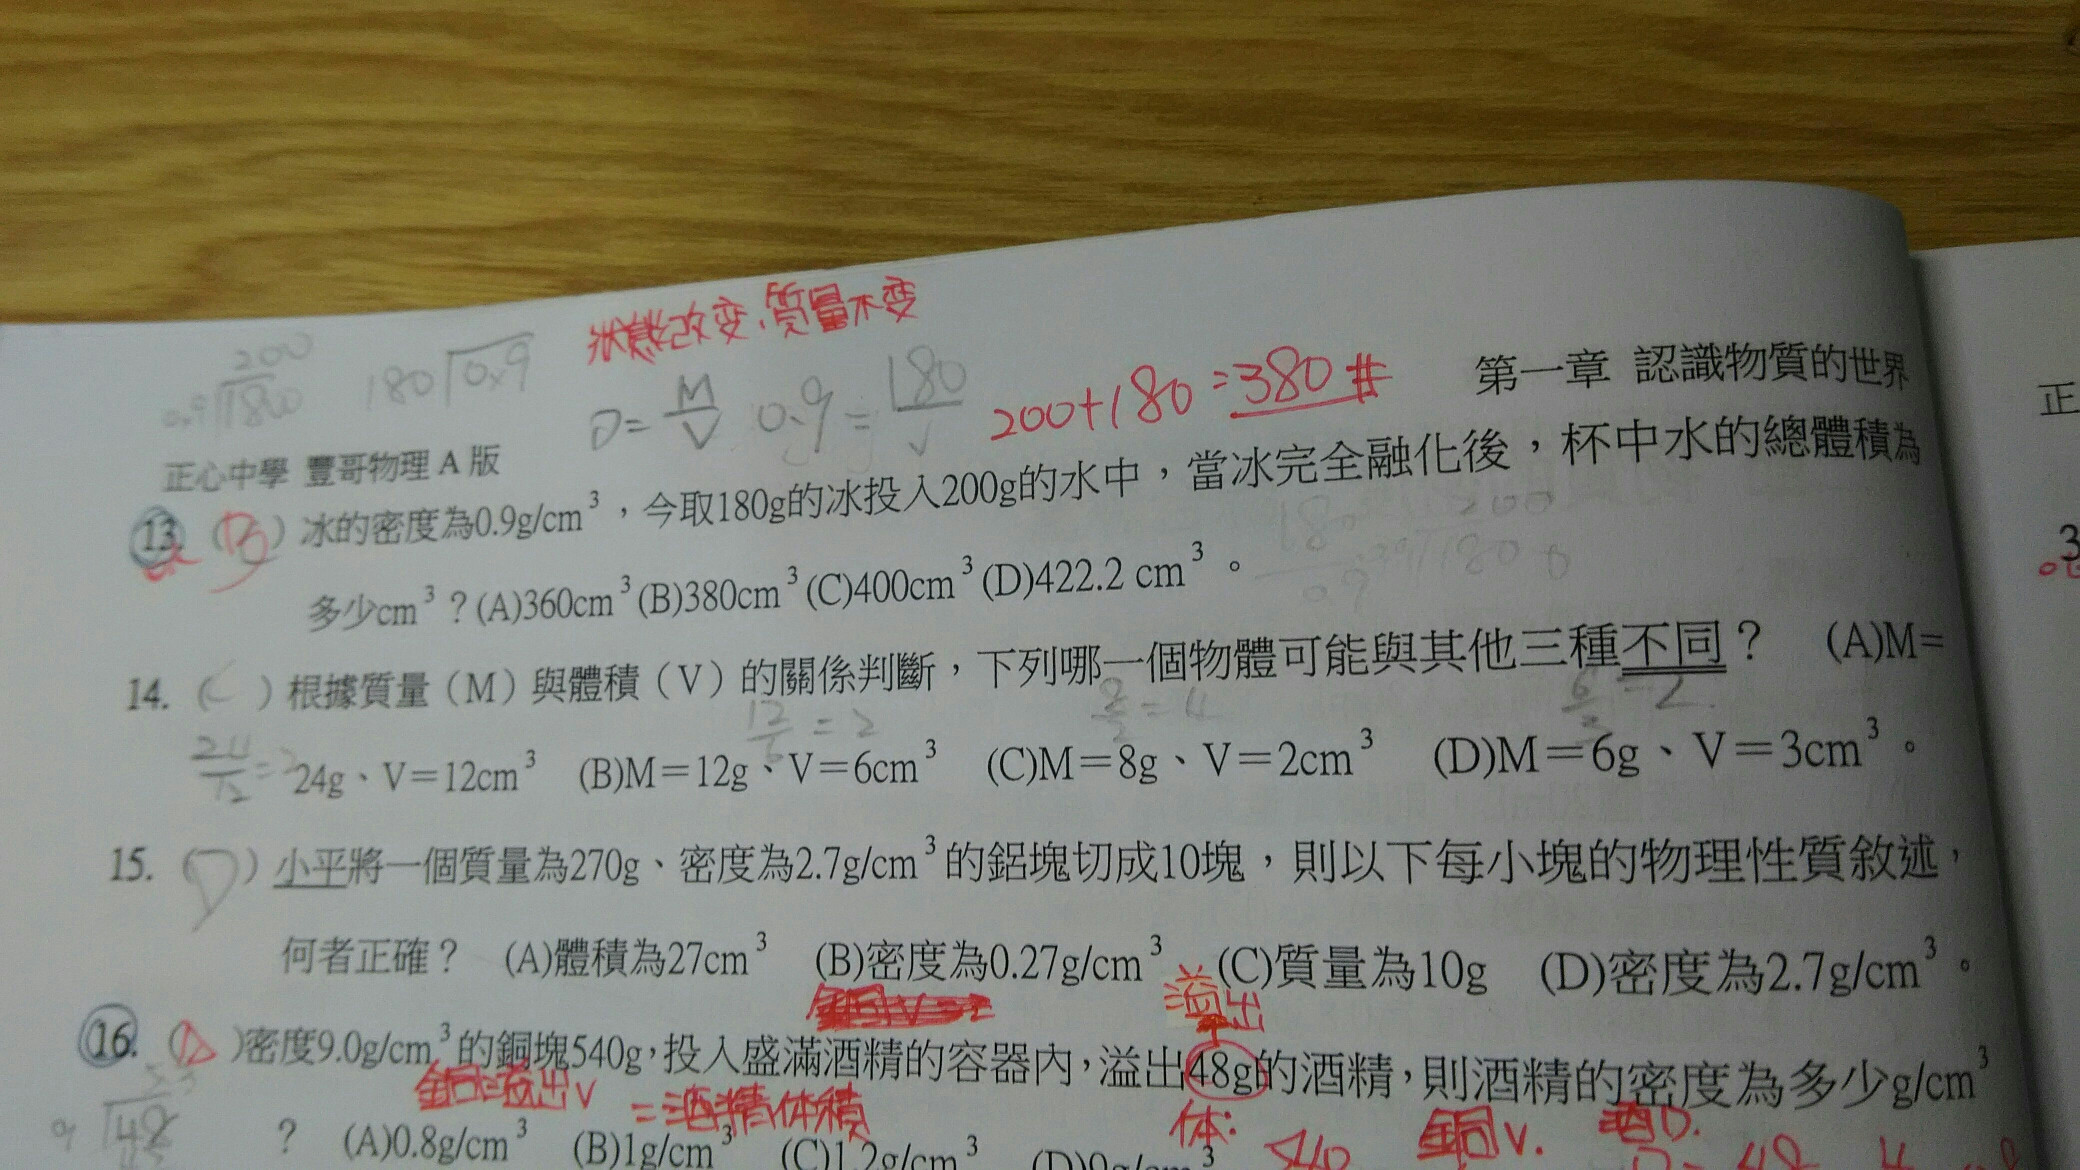 狀態改变,質量不变
200
0.9 180 0
180 0.9
D = M/V 0.9 = 180/V
200+180=380 #
第一章 認識物質的世界
正心中學 豐哥物理 A 版
13. (B) 冰的密度為0.9g/cm³，今取180g的冰投入200g的水中，當冰完全融化後，杯中水的總體積為
多少cm³？(A)360cm³(B)380cm³(C)400cm³(D)422.2 cm³。
180 / 0.9
200
14. ( ) 根據質量（M）與體積（V）的關係判斷，下列哪一個物體可能與其他三種不同？ (A)M=
12/6 = 2 8/2 = 4 6/3 = 2
24/12 = 2
24g、V＝12cm³ (B)M＝12g、V＝6cm³ (C)M＝8g、V＝2cm³ (D)M＝6g、V＝3cm³。
15. (D) 小平將一個質量為270g、密度為2.7g/cm³的鋁塊切成10塊，則以下每小塊的物理性質敘述，
何者正確？ (A)體積為27cm³ (B)密度為0.27g/cm³ (C)質量為10g (D)密度為2.7g/cm³。
溢出
16. (A) 密度9.0g/cm³的銅塊540g，投入盛滿酒精的容器內，溢出48g的酒精，則酒精的密度為多少g/cm³
銅=溢出V =酒精体積 体: 銅V. 酒D.
？ (A)0.8g/cm³ (B)1g/cm³ (C)1.2g/cm³ (D)9g/cm³
540
正
3